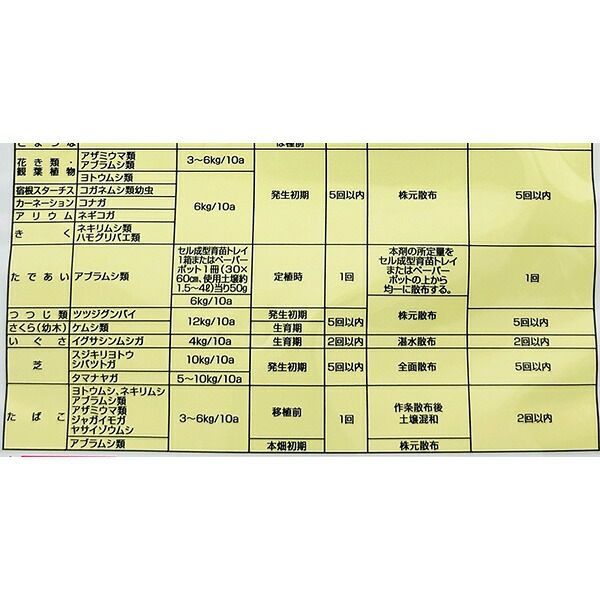 花き類・
観葉植物
アザミウマ類
アブラムシ類
3～6kg/10a
ヨトウムシ類
宿根スターチス
コガネムシ類幼虫
カーネーション
コナガ
アリウム
ネギコガ
きく
ネキリムシ類
ハモグリバエ類
6kg/10a
発生初期
5回以内
株元散布
5回以内
たであい
アブラムシ類
セル成型育苗トレイ
1箱またはペーパー
ポット1冊(30×
60cm、使用土壌約
1.5～4ℓ)当り50g
6kg/10a
定植時
1回
本剤の所定量を
セル成型育苗トレイ
またはペーパー
ポットの上から
均一に散布する。
1回
つつじ類
ツツジグンバイ
さくら(幼木)
ケムシ類
12kg/10a
発生初期
生育期
5回以内
株元散布
5回以内
いぐさ
イグサシンムシガ
4kg/10a
生育期
2回以内
湛水散布
2回以内
芝
スジキリヨトウ
シバツトガ
10kg/10a
タマナヤガ
5～10kg/10a
発生初期
5回以内
全面散布
5回以内
たばこ
ヨトウムシ、ネキリムシ
アブラムシ類
アザミウマ類
ジャガイモガ
ヤサイゾウムシ
アブラムシ類
3～6kg/10a
移植前
本畑初期
1回
作条散布後
土壌混和
株元散布
2回以内